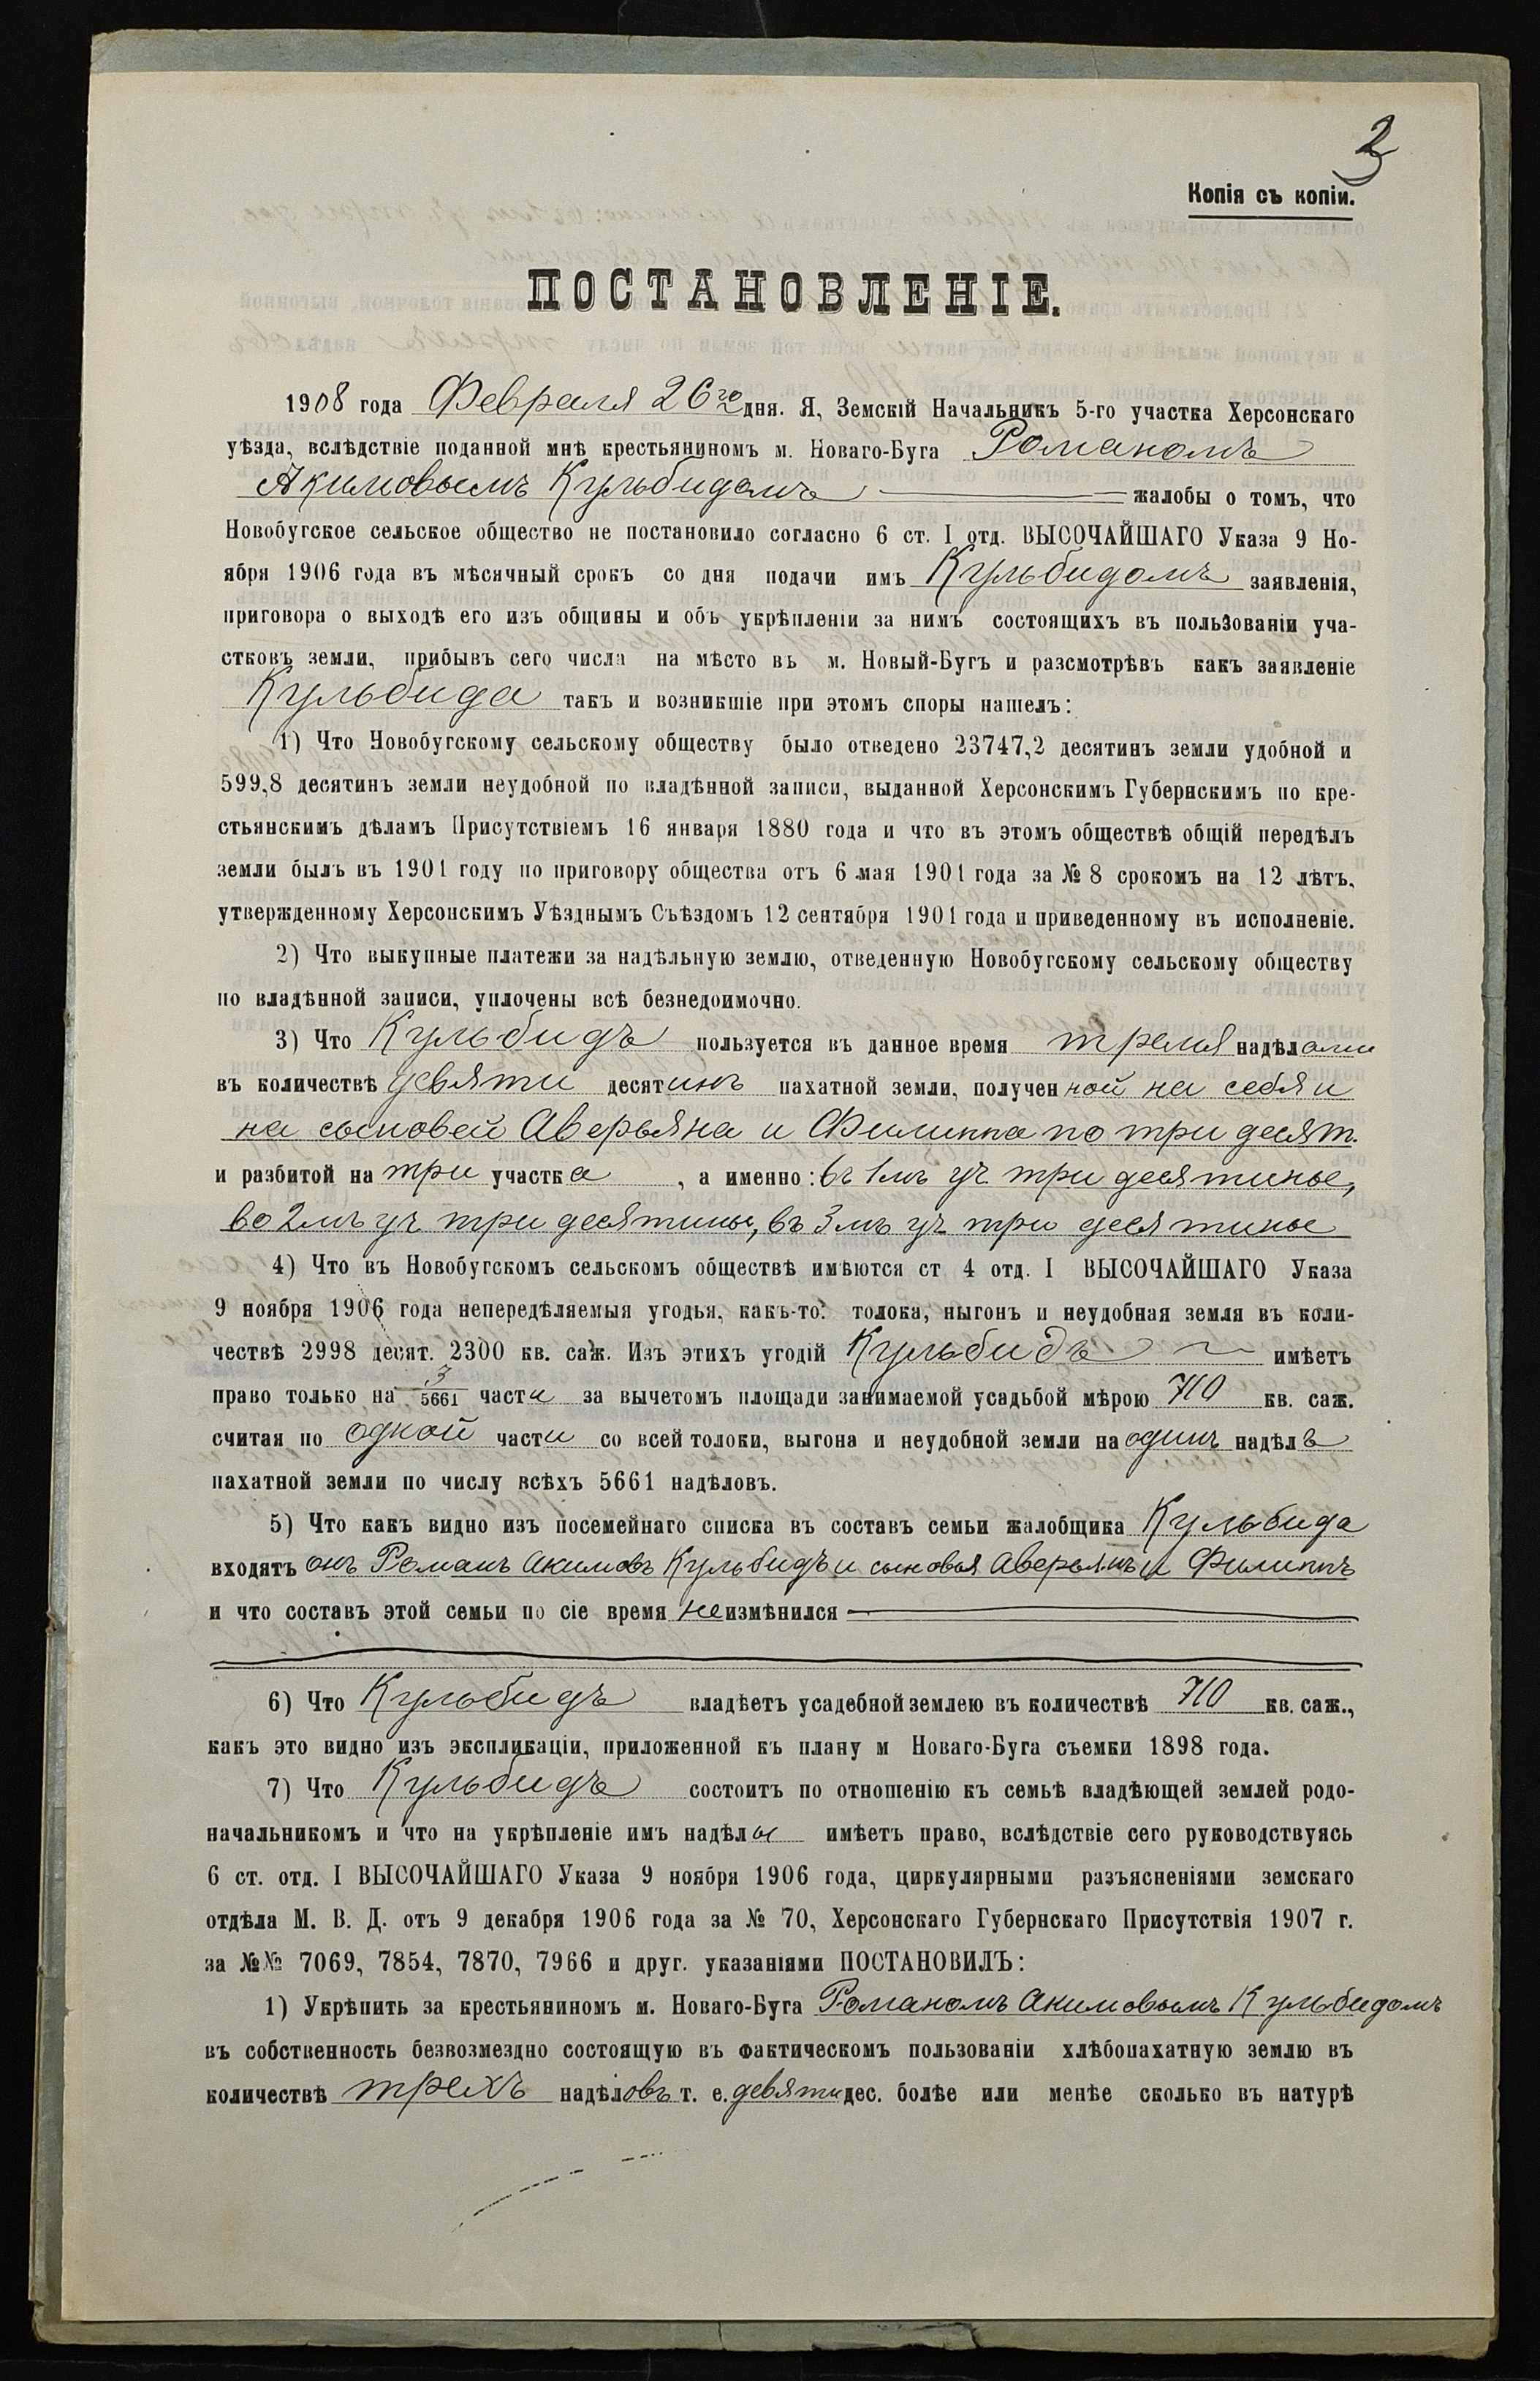 2
Копія съ копіи.
ПОСТАНОВЛЕНІЕ.
1908 года Февраля 26го дня. Я, Земскій Начальникъ 5-го участка Херсонскаго
уѣзда, вслѣдствіе поданной мнѣ крестьяниномъ м. Новаго-Буга Романомъ
Акимовымъ Кульбидомъ жалобы о томъ, что
Новобугское сельское общество не постановило согласно 6 ст. I отд. ВЫСОЧАЙШАГО Указа 9 Но-
ября 1906 года въ мѣсячный срокъ со дня подачи имъ Кульбидомъ заявленія,
приговора о выходѣ его изъ общины и объ укрѣпленіи за нимъ состоящихъ въ пользованіи уча-
стковъ земли, прибывъ сего числа на мѣсто въ м. Новый-Бугъ и разсмотрѣвъ какъ заявленіе
Кульбида такъ и возникшіе при этомъ споры нашелъ:
1) Что Новобугскому сельскому обществу было отведено 23747,2 десятинъ земли удобной и
599,8 десятинъ земли неудобной по владѣнной записи, выданной Херсонскимъ Губернскимъ по кре-
стьянскимъ дѣламъ Присутствіемъ 16 января 1880 года и что въ этомъ обществѣ общій передѣлъ
земли былъ въ 1901 году по приговору общества отъ 6 мая 1901 года за № 8 срокомъ на 12 лѣтъ,
утвержденному Херсонскимъ Уѣзднымъ Съѣздомъ 12 сентября 1901 года и приведенному въ исполненіе.
2) Что выкупные платежи за надѣльную землю, отведенную Новобугскому сельскому обществу
по владѣнной записи, уплочены всѣ безнедоимочно.
3) Что Кульбидъ пользуется въ данное время тремя надѣлами
въ количествѣ девяти десятинъ пахатной земли, полученной на себя и
на сыновей Аверьяна и Филиппа по три десят.
и разбитой на три участка, а именно: въ 1мъ уч. три десятины,
во 2мъ уч три десятины, въ 3мъ уч три десятины
4) Что въ Новобугскомъ сельскомъ обществѣ имѣются ст 4 отд. I ВЫСОЧАЙШАГО Указа
9 ноября 1906 года непередѣляемыя угодья, какъ-то: толока, ныгонъ и неудобная земля въ коли-
чествѣ 2998 десят. 2300 кв. саж. Изъ этихъ угодій Кульбидъ имѣетъ
право только на 3/5661 части за вычетомъ площади занимаемой усадьбой мѣрою 710 кв. саж.
считая по одной части со всей толоки, выгона и неудобной земли на одинъ надѣлъ
пахатной земли по числу всѣхъ 5661 надѣловъ.
5) Что какъ видно изъ посемейнаго списка въ составъ семьи жалобщика Кульбида
входятъ онъ Романъ Акимовъ Кульбидъ и сыновья Аверьянъ и Филиппъ
и что составъ этой семьи по сіе время неизмѣнился
6) Что Кульбидъ владѣетъ усадебной землею въ количествѣ 710 кв. саж.,
какъ это видно изъ экспликаціи, приложенной къ плану м Новаго-Буга съемки 1898 года.
7) Что Кульбидъ состоитъ по отношенію къ семьѣ владѣющей землей родо-
начальникомъ и что на укрѣпленіе имъ надѣлы имѣетъ право, вслѣдствіе сего руководствуясь
6 ст. отд. I ВЫСОЧАЙШАГО Указа 9 ноября 1906 года, циркулярными разъясненіями земскаго
отдѣла М. В. Д. отъ 9 декабря 1906 года за № 70, Херсонскаго Губернскаго Присутствія 1907 г.
за №№ 7069, 7854, 7870, 7966 и друг. указаніями ПОСТАНОВИЛЪ:
1) Укрѣпить за крестьяниномъ м. Новаго-Буга Романомъ Акимовымъ Кульбидомъ
въ собственность безвозмездно состоящую въ фактическомъ пользованіи хлѣбопахатную землю въ
количествѣ трехъ надѣловъ т. е. девяти дес. болѣе или менѣе сколько въ натурѣ